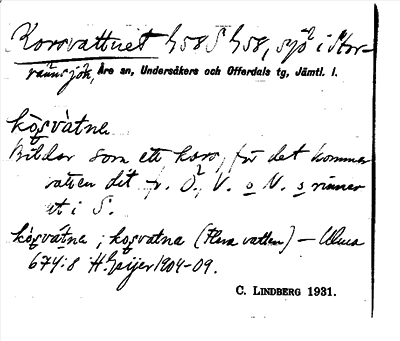 Korsvattnet h58 S h58, sjö i Stor-
rännsjön, Åre sn, Undersåkers och Offerdals tg, Jämtl. l.
kọs̥vàtnə
Bildar som ett kors, för det kommer
vatten dit fr. O, V. o N. o rinner
ut i S.
kọs̥vàtnə ; kọs̥vatna (flera vatten) — Ulma
674:8 H. Geijer 1904-09.
C. LINDBERG 1931.